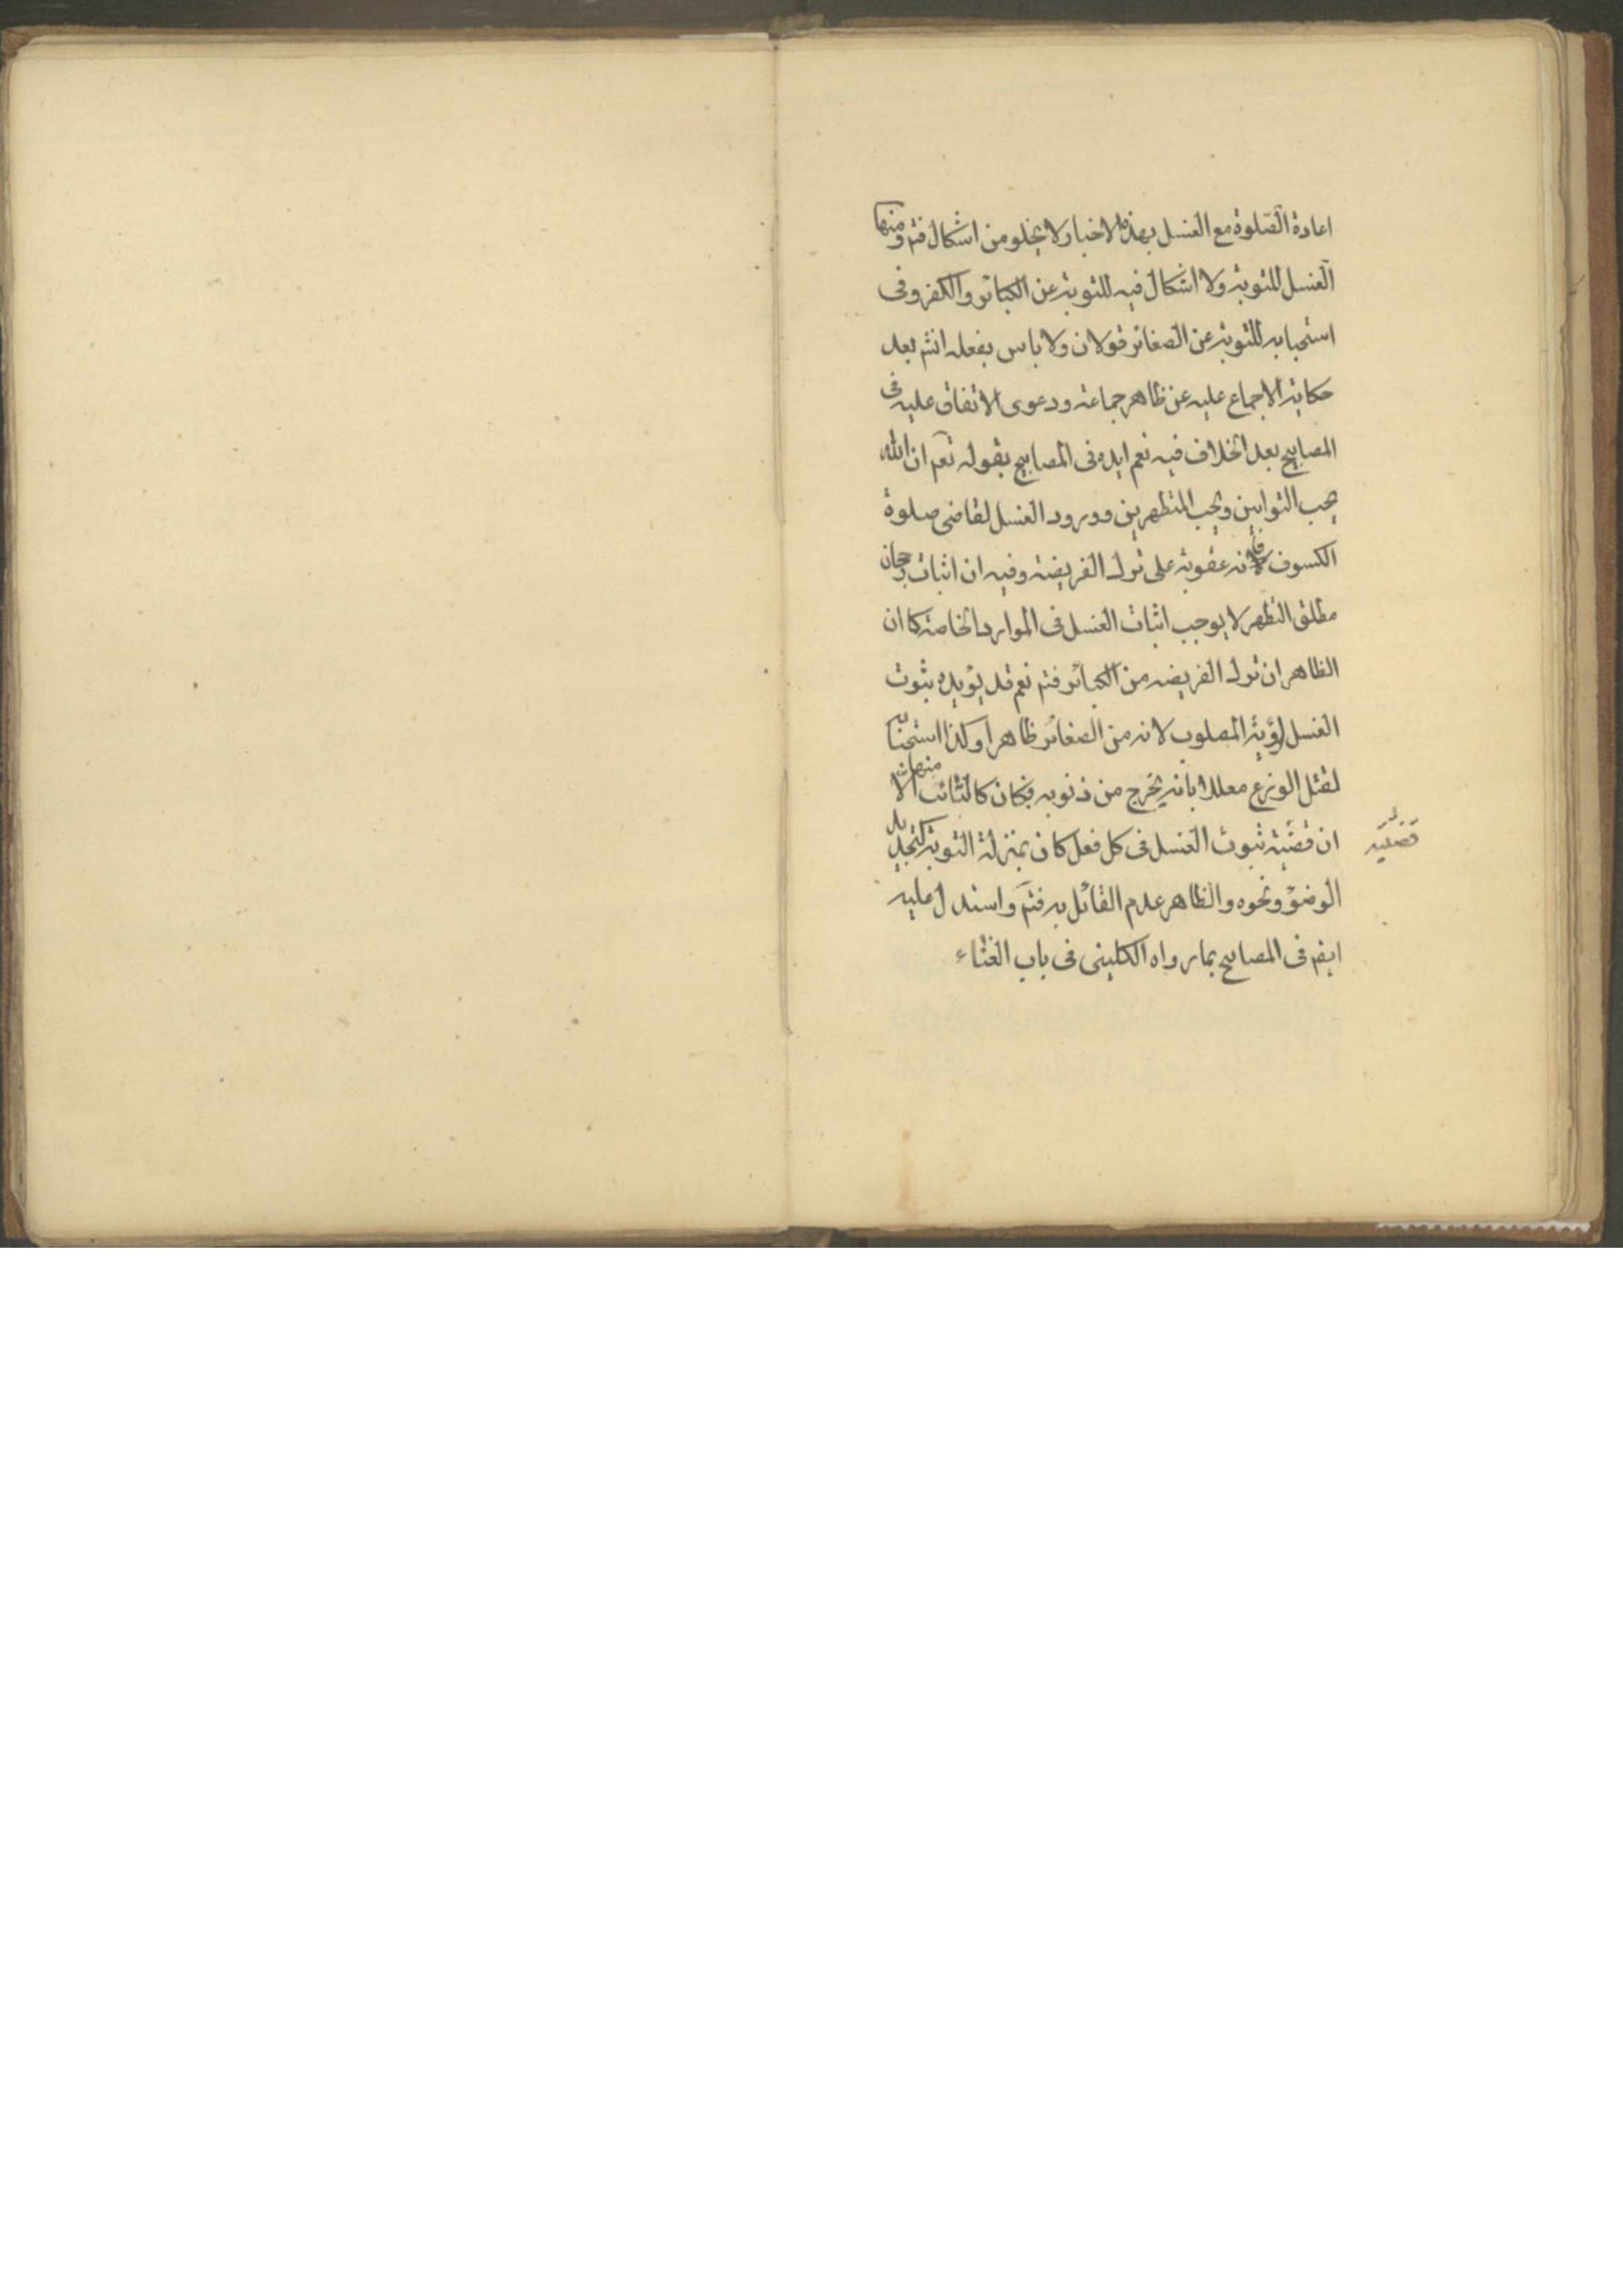 اعادة الصّلوة مع الغسل بهذه الاخبار لا يخلو من اشكال فتم ومنها
الغسل للتوبة ولا اشكال فيه للتوبة عن الكبائر والكفر وفى
استحبابه للتوبة عن الصغائر قولان ولا باس بفعله انتم بعد
حكاية الاجماع عليه عن ظاهر جماعة ودعوى الاتفاق عليه فى
المصابيح بعد الخلاف فيه نعم ايده فى المصابيح بقوله تعم ان الله
يحب التوابين ويحب المتطهرين وورود الغسل لقاضى صلوة
الكسوف فانه عقوبة على ترك الفريضة وفيه ان اثبات رجحان
مطلق التطهر لا يوجب اثبات الغسل فى الموارد الخاصة كما ان
الظاهر ان ترك الفريضه من الكبائر فتم نعم قد يؤيده بثوت
الغسل لرؤية المصلوب لانه من الصغائر ظاهرا وكذا استحبابه
لقتل الوزغ معللا بانه يخرج من ذنوبه فكان كالتائب منها الا
ان قضيته ثبوت الغسل فى كل فعل كان بمنزلة التوبة كتجديد
الوضوء ونحوه والظاهر عدم القائل به فتم واستدل عليه
ايضم فى المصابيح بما رواه الكلينى فى باب الغناء
قضيته